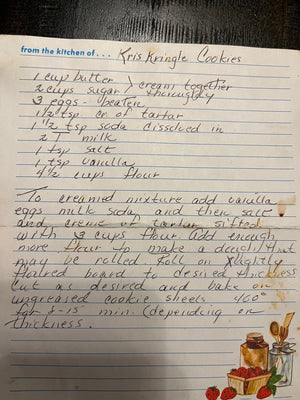 from the kitchen of... Kris Kringle Cookies
1 cup butter > cream together
2 cups sugar thoroughly
3 eggs - beaten
1 1/2 tsp cr of tartar
1 1/2 tsp soda dissolved in
2 T milk
1 tsp salt
1 tsp vanilla
4 1/2 cups flour
To creamed mixture add vanilla
eggs milk soda, and then salt
and creme of tartar sifted
with 3 cups flour. Add enough
more flour to make a dough that
may be rolled. Roll on slightly
floured board to desired thickness
Cut as desired and bake on
ungreased cookie sheets. 400°
for 8-15 min. (depending on
thickness.